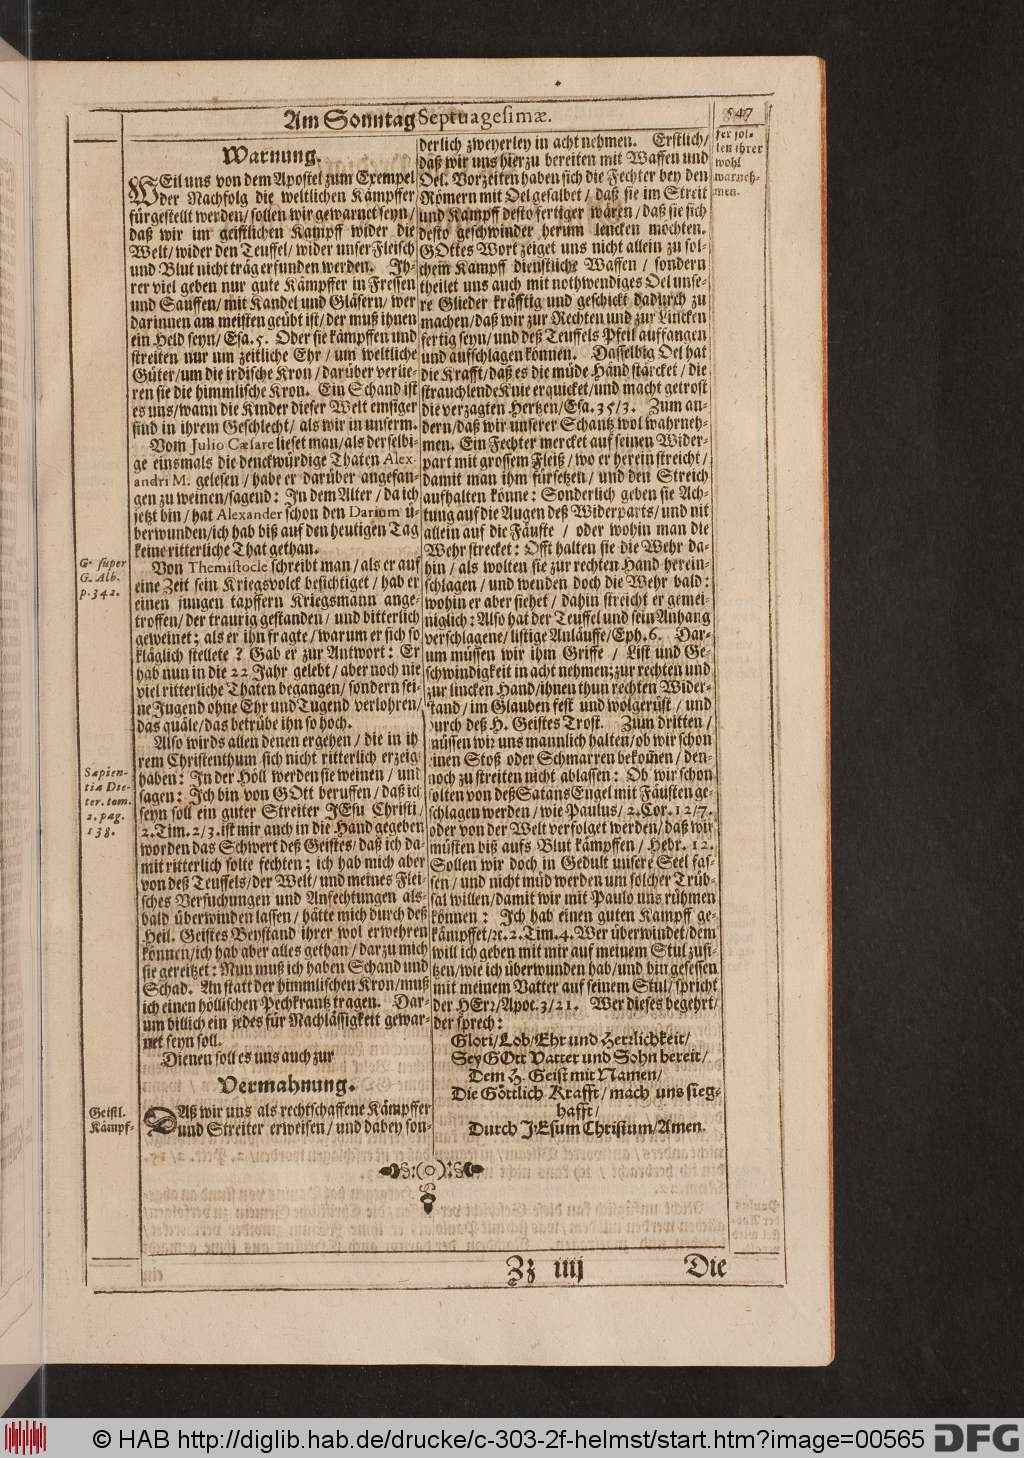 Am Sonntag Septuagesimæ.
547
Warnung.
WEil uns von dem Apostel zum Exempel
der Nachfolg die weltlichen Kämpffer
fürgestellt werden/ sollen wir gewarnet seyn/
daß wir im geistlichen Kampff wider die
Welt/ wider den Teuffel/ wider unser Fleisch
und Blut nicht träg erfunden werden. Ih-
rer viel geben nur gute Kämpffer in Fressen
und Sauffen/ mit Kandel und Gläsern/ wer
darinnen am meisten geübt ist/ der muß ihnen
ein Held seyn/ Esa. 5. Oder sie kämpffen und
streiten nur um zeitliche Ehr/ um weltliche
Güter/ um die irdische Kron/ darüber verlie-
ren sie die himmlische Kron. Ein Schand ist
es uns/ wann die Kinder dieser Welt emsiger
sind in ihrem Geschlecht/ als wir in unserm.
Vom Julio Cæsare lieset man/ als derselbi-
ge einsmals die denckwürdige Thaten Alex-
andri M. gelesen/ habe er darüber angefan-
gen zu weinen/ sagend: In dem Alter/ da ich
jetzt bin/ hat Alexander schon den Darium ü-
berwunden/ ich hab biß auf den heutigen Tag
keine ritterliche That gethan.
G. super
G. Alb.
p. 342.
Von Themistocle schreibt man/ als er auf
eine Zeit sein Kriegsvolck besichtiget/ hab er
einen jungen tapffern Kriegsmann ange-
troffen/ der traurig gestanden/ und bitterlich
geweinet; als er ihn fragte/ warum er sich so
kläglich stellete? Gab er zur Antwort: Er
hab nun in die 22 Jahr gelebt/ aber noch nie
viel ritterliche Thaten begangen/ sondern sei-
ne Jugend ohne Ehr und Tugend verlohren/
das quäle/ das betrübe ihn so hoch.
Sapien-
tia Die-
ter. tom.
2. pag.
138.
Also wirds allen denen ergehen/ die in ih
rem Christenthum sich nicht ritterlich erzeig
haben: In der Höll werden sie weinen/ und
sagen: Ich bin von GOtt beruffen/ daß ich
seyn soll ein guter Streiter JEsu Christi/
2. Tim. 2/3. ist mir auch in die Hand gegeben
worden das Schwert deß Geistes/ daß ich da-
mit ritterlich solte fechten; ich hab mich aber
von deß Teuffels/ der Welt/ und meines Flei-
sches Versuchungen und Anfechtungen als-
bald überwinden lassen/ hätte mich durch deß
Heil. Geistes Beystand ihrer wol erwehren
können/ ich hab aber alles gethan/ dar zu mich
sie gereitzet: Nun muß ich haben Schand und
Schad. An statt der himmlischen Kron/ muß
ich einen höllischen Pechkrantz tragen. Dar-
um billich ein jedes für Nachlässigkeit gewar-
net seyn soll.
Dienen soll es uns auch zur
Vermahnung.
Geistl.
Kämpf-
DAß wir uns als rechtschaffene Kämpffer
und Streiter erweisen/ und dabey son-
derlich zweyerley in acht nehmen. Erstlich/
daß wir uns hierzu bereiten mit Waffen und
Oel. Vorzeiten haben sich die Fechter bey den
Römern mit Oel gesalbet/ daß sie im Streit
und Kampff desto fertiger wären/ daß sie sich
desto geschwinder herum lencken mochten.
GOttes Wort zeiget uns nicht allein zu sol-
chem Kampff dienstliche Waffen/ sondern
theilet uns auch mit nothwendiges Oel unse-
re Glieder kräfftig und geschickt dadurch zu
machen/ daß wir zur Rechten und zur Lincken
fertig seyn/ und deß Teuffels Pfeil auffangen
und aufschlagen können. Dasselbig Oel hat
die Krafft/ daß es die müde Händ stärcket/ die
strauchlende Knie erquicket/ und macht getrost
die verzagten Hertzen/ Esa. 35/3. Zum an-
dern/ daß wir unserer Schantz wol wahrneh-
men. Ein Fechter mercket auf seinen Wider-
part mit grossem Fleiß/ wo er herein streicht/
damit man ihm fürsetzen/ und den Streich
aufhalten könne: Sonderlich geben sie Ach-
tung auf die Augen deß Widerparts/ und nit
allein auf die Fäuste/ oder wohin man die
Wehr strecket: Offt halten sie die Wehr da-
hin/ als wolten sie zur rechten Hand herein-
schlagen/ und wenden doch die Wehr bald:
wohin er aber siehet/ dahin streicht er gemei-
niglich: Also hat der Teuffel und sein Anhang
verschlagene/ listige Anläuffe/ Eph. 6. Dar-
um müssen wir ihm Griffe/ List und Ge-
schwindigkeit in acht nehmen; zur rechten und
zur lincken Hand/ ihnen thun rechten Wider-
stand/ im Glauben fest und wolgerüst/ und
durch deß H. Geistes Trost. Zum dritten/
müssen wir uns mannlich halten/ ob wir schon
einen Stoß oder Schmarren bekommen/ den-
noch zu streiten nicht ablassen: Ob wir schon
solten von deß Satans Engel mit Fäusten ge-
schlagen werden/ wie Paulus/ 2. Cor. 12/7.
oder von der Welt verfolget werden/ daß wir
müsten biß aufs Blut kämpffen/ Hebr. 12.
Sollen wir doch in Gedult unsere Seel fas-
sen/ und nicht müd werden um solcher Trüb-
sal willen/ damit wir mit Paulo uns rühmen
können: Ich hab einen guten Kampff ge-
kämpffet/ ꝛc. 2. Tim. 4. Wer überwindet/ dem
will ich geben mit mir auf meinem Stul zusi-
tzen/ wie ich überwunden hab/ und bin gesessen
mit meinem Vatter auf seinem Stul/ spricht
der HErr/ Apoc. 3/21. Wer dieses begehrt/
der sprech:
Glori/ Lob/ Ehr und Herrlichkeit/
Sey GOtt Vatter und Sohn bereit/
Dem H. Geist mit Namen/
Die Göttlich Krafft/ mach uns sieg-
hafft/
Durch JEsum Christum/ Amen.
fer sol-
len ihrer
wohl
warneh-
men.
Zz iiij
Die
© HAB http://diglib.hab.de/drucke/c-303-2f-helmst/start.htm?image=00565
DFG